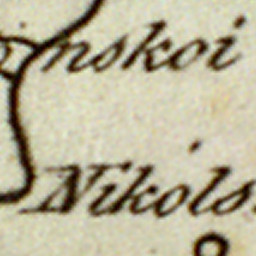 nskoi
Nikols